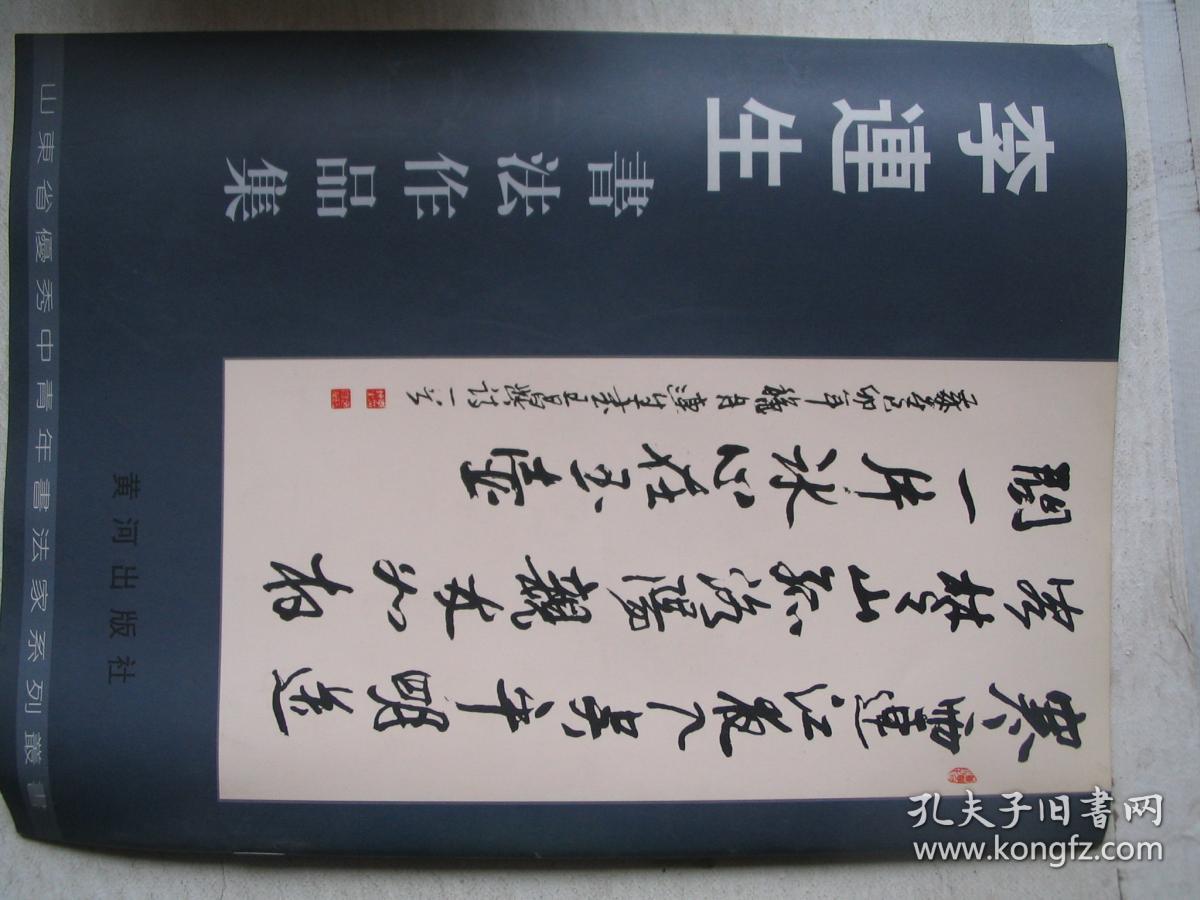 李連生
書法作品集
寒雨連江夜入吴平明送
客楚山孤洛陽親友如相
問一片冰心在玉壺
己卯年 月連生書王昌齡詩一首
黄河出版社
山東省優秀中青年書法家系列叢書
孔夫子旧書网
www.kongfz.com